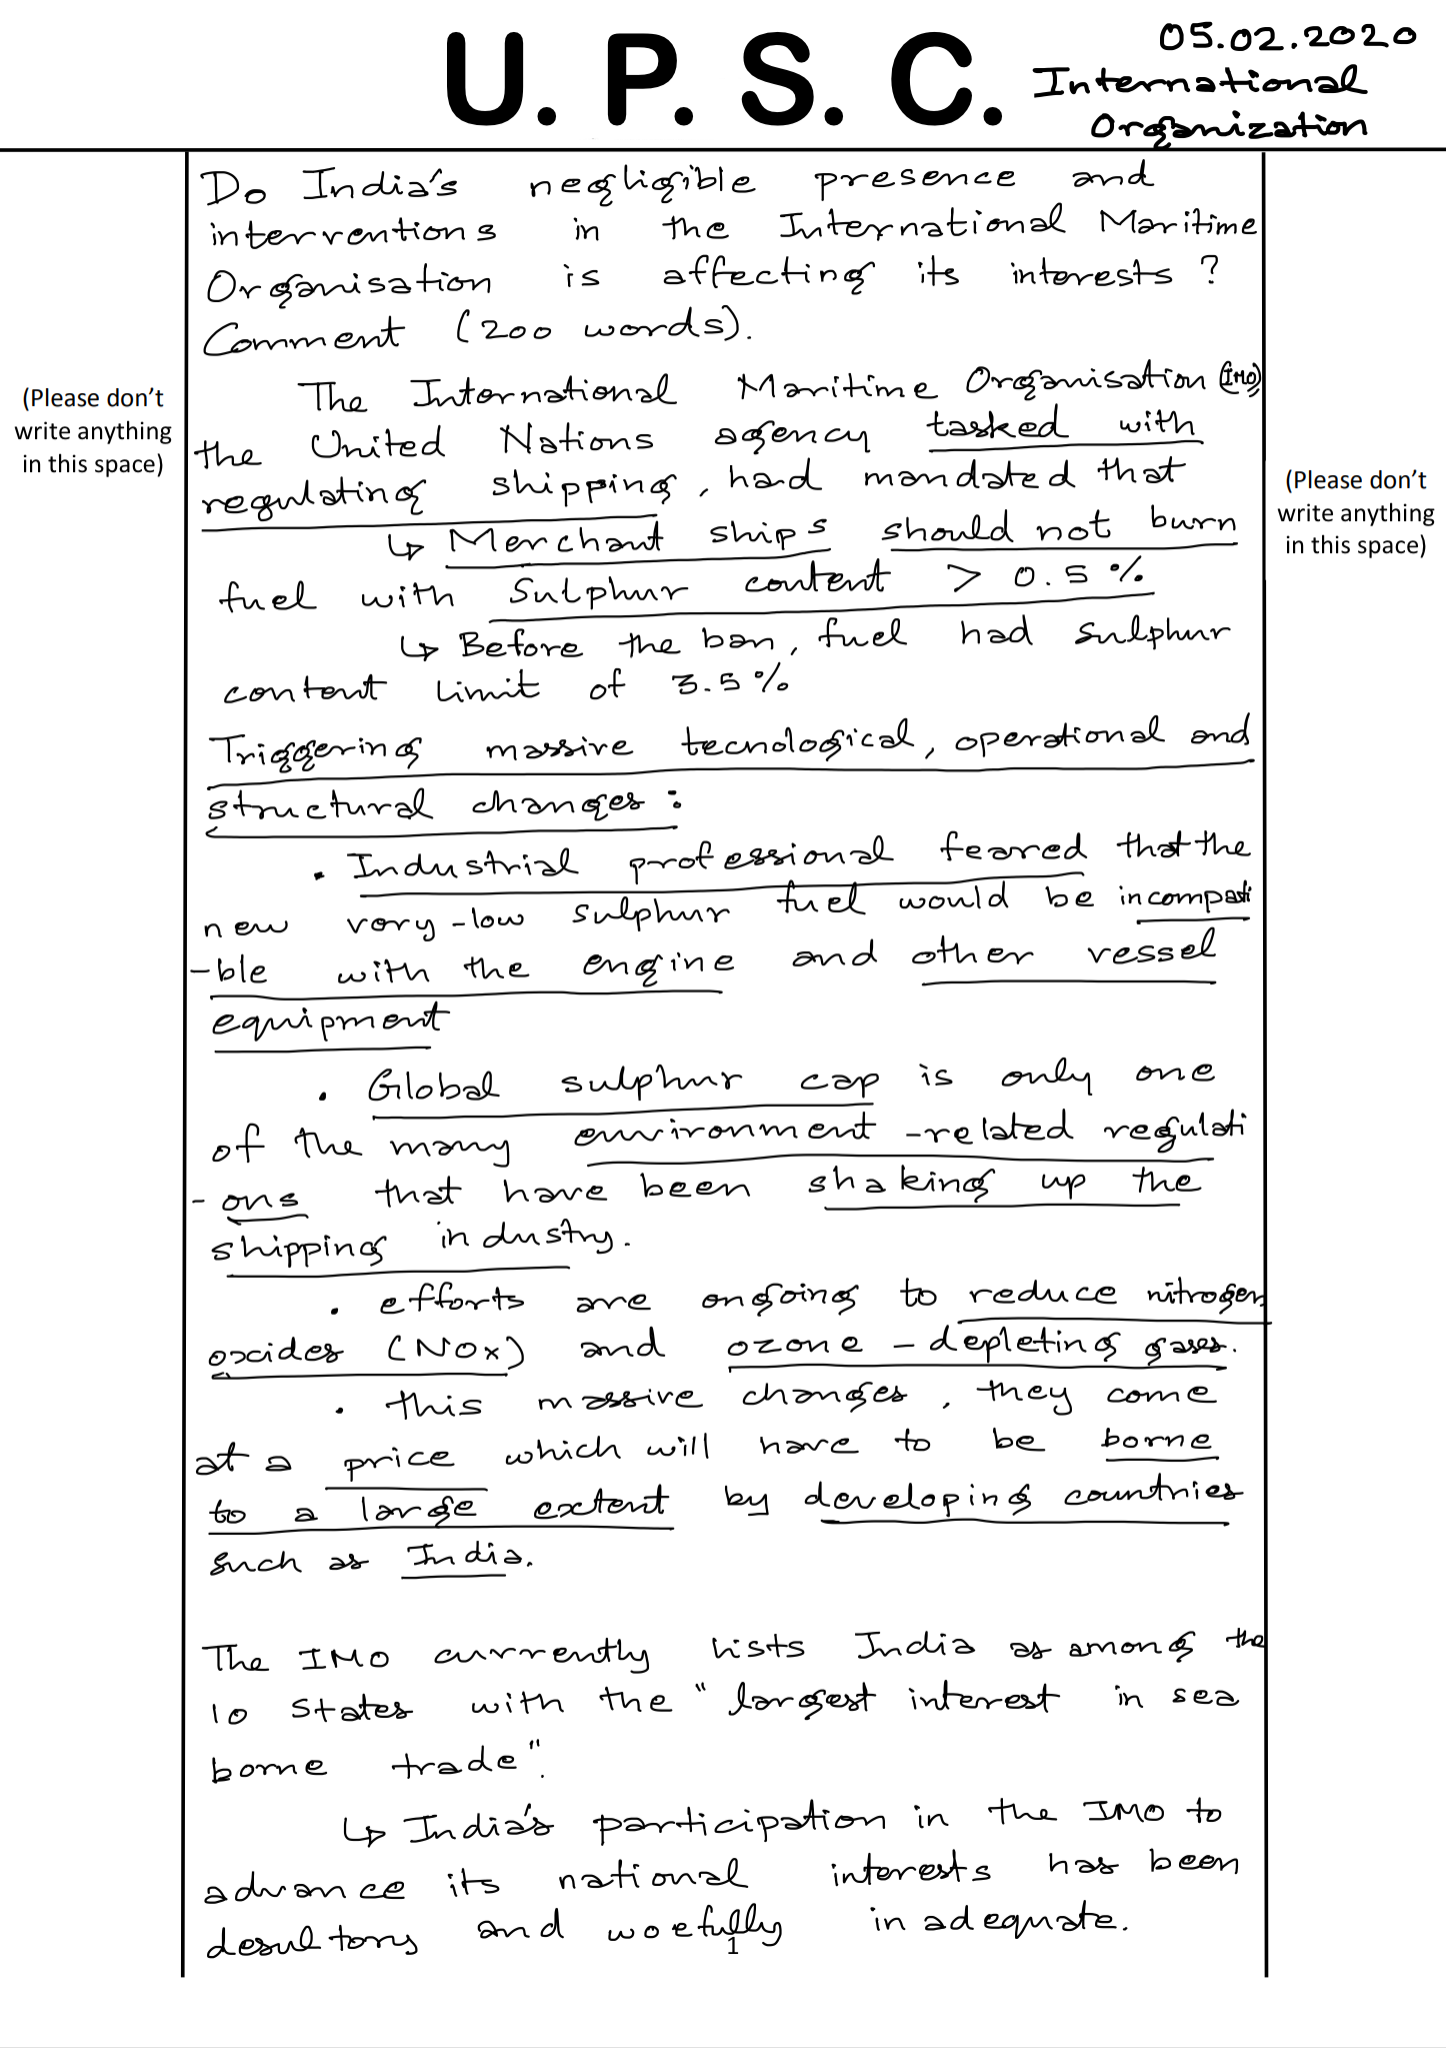 U. P. S. C.
05.02.2020
International
Organization
Do India's negligible presence and
interventions in the International Maritime
Organisation is affecting its interests ?
Comment (200 words).
(Please don't
write anything
in this space)
The International Maritime Organisation (IMO),
the United Nations agency tasked with
regulating shipping, had mandated that
↳ Merchant ships should not burn
fuel with Sulphur content > 0.5 %
↳ Before the ban, fuel had sulphur
content limit of 3.5%
Triggering massive tecnological, operational and
structural changes :
• Industrial professional feared that the
new very-low sulphur fuel would be incompati
-ble with the engine and other vessel
equipment
• Global sulphur cap is only one
of the many environment-related regulati
-ons that have been shaking up the
shipping industry.
• efforts are ongoing to reduce nitrogen
oxides (NOx) and ozone-depleting gases.
• this massive changes, they come
at a price which will have to be borne
to a large extent by developing countries
such as India.
The IMO currently lists India as among the
10 States with the "largest interest in sea
borne trade".
↳ India's participation in the IMO to
advance its national interests has been
desultory and woefully inadequate.
1
(Please don't
write anything
in this space)